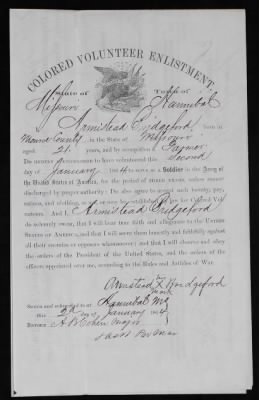 COLORED VOLUNTEER ENLISTMENT.
State of Town of
Missouri Hannibal
I, Armistead Bridgeford, born in
County, in the State of Missouri
aged 21 years, and by occupation a Farmer
Do hereby acknowledge to have volunteered this Second
day of January 1864 to serve as a Soldier in the Army of
the United States of America, for the period of three years, unless sooner
discharged by proper authority: Do also agree to accept such bounty, pay,
rations, and clothing, as are or may be established by law for Colored Vol-
unteers. And I, Armistead Bridgeford
do solemnly swear, that I will bear true faith and allegiance to the United
States of America, and that I will serve them honestly and faithfully against
all their enemies or opposers whomsoever; and that I will observe and obey
the orders of the President of the United States, and the orders of the
officers appointed over me, according to the Rules and Articles of War.
Armistead X Bridgeford
mark
Sworn and subscribed to at Hannibal Mo
this 2d day of January 1864
Before Major